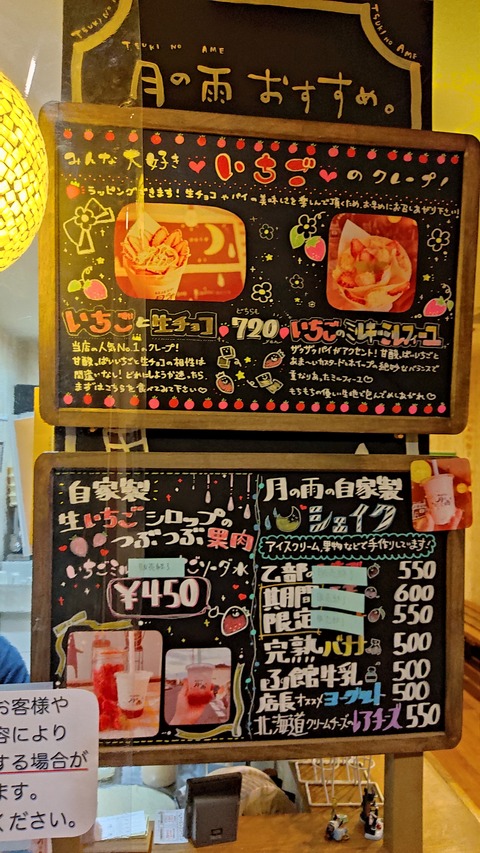 TSUKI NO AME
TSUKI NO AME
TSUKI NO AME
月の雨 おすすめ。
みんな大好き いちご のクレープ！
ラッピングできます！生チョコやパイの美味しさを楽しんで頂くため、お早めにお召しあがり下さい！
いちごと生チョコ
どちらも
720
いちごのミルキーミルフィーユ
当店の人気No.1クレープ！
甘酸っぱいいちごと生チョコの相性は
間違いない！どれにしようか迷ったら、
まずはこちらを食べてみて下さい♡
ザクザクパイがアクセント！甘酸っぱいいちごと
あまーいカスタード&ホイップの絶妙なバランスで
重なり合ったミルフィーユ♡
もちもちの優しい生地で包んでめしあがれ♡
自家製
生いちごシロップの
つぶつぶ果肉
いちご
ソーダ
¥450
月の雨の自家製
シェイク
アイスクリーム、果物などで手作りしています！
乙部の
550
期間
600
限定
550
完熟バナナ
500
函館牛乳
500
店長オススメヨーグルト
500
北海道クリームチーズのレアチーズ
550
お客様や
容により
する場合が
ます。
ください。